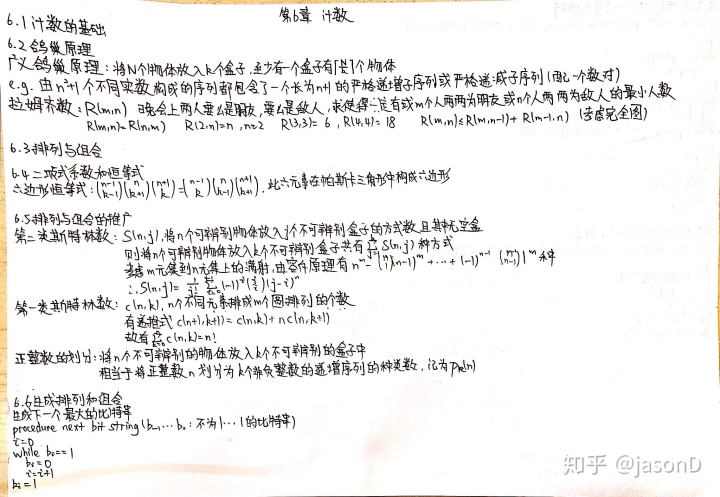 第6章 计数
6.1 计数的基础
6.2 鸽巢原理
广义鸽巢原理：将N个物体放入k个盒子，至少有一个盒子有⌈N/k⌉个物体
e.g. 由n²+1个不同实数构成的序列都包含了一个长为n+1的严格递增子序列或严格递减子序列（配一个数对）
拉姆齐数：R(m,n) 晚会上两人要么是朋友，要么是敌人，求使得一定有或m个人两两为朋友或n个人两两为敌人的最小人数
R(m,n)=R(n,m) R(2,n)=n, n≥2 R(3,3)=6, R(4,4)=18 R(m,n)≤R(m,n-1)+R(m-1,n) (考虑完全图)
6.3 排列与组合
6.4 二项式系数和恒等式
六边形恒等式：(n-1 k-1)(n k+1)(n+1 k)=(n-1 k)(n k-1)(n+1 k+1)，此六元素在帕斯卡三角形中构成六边形
6.5 排列与组合的推广
第二类斯特林数：S(n,j)，将n个可辨别物体放入j个不可辨别盒子的方式数且其中无空盒
则将n个可辨别物体放入k个不可辨别盒子共有 Σ S(n,j) 种方式
考虑m元集到n元集上的满射，由容斥原理有 n^m-(n 1)(n-1)^m+…+(-1)^(n-1)(n n-1)1^m 种
∴S(n,j)=1/j! Σ(-1)^i(j i)(j-i)^n
第一类斯特林数：c(n,k)，n个不同元素排成m个圆排列的个数
有递推式 c(n+1,k+1)=c(n,k)+nc(n,k+1)
故有 Σ c(n,k)=n!
正整数的划分：将n个不可辨别的物体放入k个不可辨别的盒子中
相当于将正整数n划分为k个非负整数的递增序列的种类数，记为Pk(n)
6.6 生成排列和组合
生成下一个最大的比特串
procedure next bit string(bn-1…b0：不为1…1的比特串)
i=0
while bi==1
bi=0
i=i+1
bi=1
知乎 @jasonD